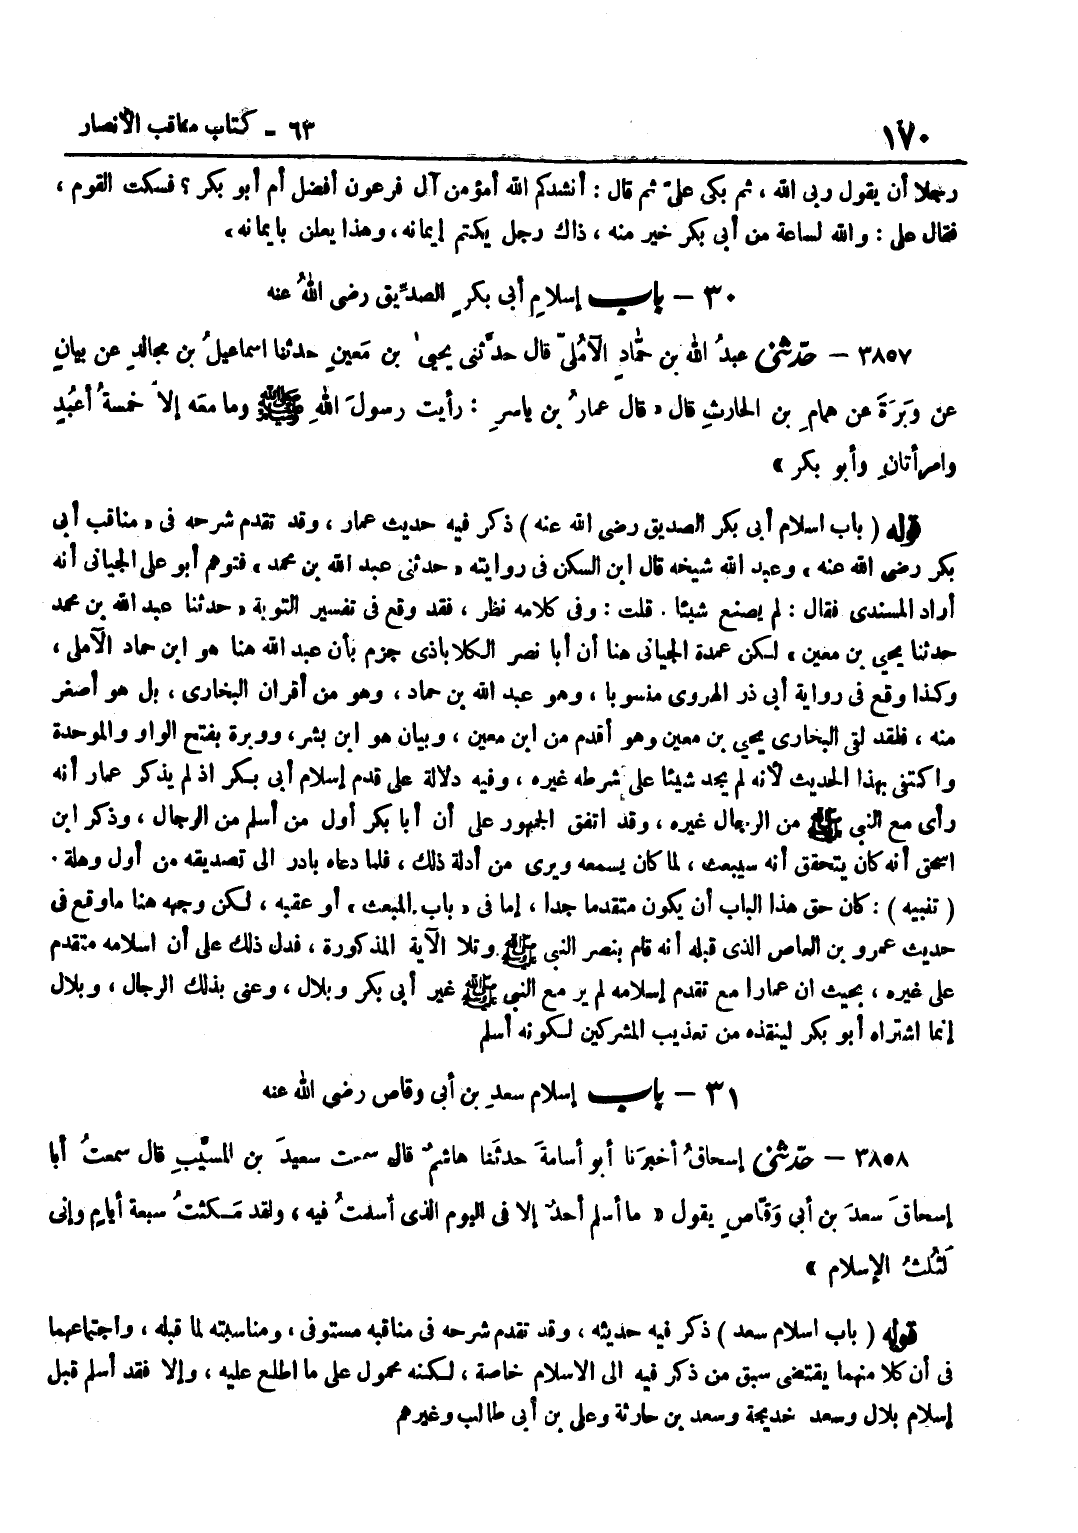 ١٧٠
٦٣ - كتاب مناقب الأنصار
رجلا أن يقول ربى الله ، ثم بكى علىّ ثم قال : أنشدكم الله أمؤمن آل فرعون أفضل أم أبو بكر ؟ فسكت القوم ،
فقال على : والله لساعة من أبى بكر خير منه ، ذاك رجل يكتم إيمانه ، وهذا يعلن بايمانه »
٣٠ - باب إسلامِ أبى بكرٍ الصدِّيق رضى اللهُ عنه
٣٨٥٧ - حدّثنى عبدُ الله بن حمَّادٍ الآمُلىّ قال حدَّثنى يحيىٰ بن مَعينٍ حدثنا اسماعيلُ بن مجالدٍ عن بيانٍ
عن وبَرَةَ عن همامِ بن الحارثِ قال « قال عمارُ بن ياسرٍ : رأيت رسولَ اللهِ ﷺ وما معَه إلاّ خمسةُ أعبُدٍ
وامرأتانِ وأبو بكر »
قوله ( باب اسلام أبى بكر الصديق رضى الله عنه ) ذكر فيه حديث عمار ، وقد تقدم شرحه فى « مناقب أبى
بكر رضى الله عنه » وعبد الله شيخه قال ابن السكن فى روايته « حدثنى عبد الله بن محمد » فتوهم أبو على الجيانى أنه
أراد المسندى فقال : لم يصنع شيئا . قلت : وفى كلامه نظر ، فقد وقع فى تفسير التوبة « حدثنا عبد الله بن محمد
حدثنا يحيى بن معين » لكن عمدة الجيانى هنا أن أبا نصر الكلاباذى جزم بأن عبد الله هنا هو ابن حماد الآملى ،
وكذا وقع فى رواية أبى ذر الهروى منسوبا ، وهو عبد الله بن حماد ، وهو من أقران البخارى ، بل هو أصغر
منه ، فلقد لقى البخارى يحيى بن معين وهو أقدم من ابن معين ، وبيان هو ابن بشر، ووبرة بفتح الواو والموحدة
واكتفى بهذا الحديث لأنه لم يجد شيئا على شرطه غيره ، وفيه دلالة على قدم إسلام أبى بكر اذ لم يذكر عمار أنه
رأى مع النبى ﷺ من الرجال غيره ، وقد اتفق الجمهور على أن أبا بكر أول من أسلم من الرجال ، وذكر ابن
اسحق أنه كان يتحقق أنه سيبعث ، لما كان يسمعه ويرى من أدلة ذلك ، فلما دعاه بادر الى تصديقه من أول وهلة .
( تنبيه ) : كان حق هذا الباب أن يكون متقدما جدا ، إما فى « باب المبعث » أو عقبه ، لكن وجهه هنا ماوقع فى
حديث عمرو بن العاص الذى قبله أنه قام بنصر النبى ﷺ وتلا الآية المذكورة ، فدل ذلك على أن اسلامه متقدم
على غيره ، بحيث ان عمارا مع تقدم إسلامه لم ير مع النبى ﷺ غير أبى بكر وبلال ، وعنى بذلك الرجال ، وبلال
إنما اشتراه أبو بكر لينقذه من تعذيب المشركين لكونه أسلم
٣١ - باب إسلام سعدِ بن أبى وقاص رضى الله عنه
٣٨٥٨ - حدّثنى إسحاقُ أخبرَنا أبو أسامةَ حدثَنا هاشمٌ قال سمعت سعيدَ بن المسيَّبِ قال سمعتُ أبا
إسحاقَ سعدَ بن أبى وَقّاصٍ يقول « ما أسلم أحدٌ إلا فى اليوم الذى أسلمتُ فيه ، ولقد مَكثتُ سبعة أيامٍ وإنى
لثُلثُ الإسلام »
قوله ( باب اسلام سعد ) ذكر فيه حديثه ، وقد تقدم شرحه فى مناقبه مستوفى ، ومناسبته لما قبله ، واجتماعهما
فى أن كلا منهما يقتضى سبق من ذكر فيه الى الاسلام خاصة ، لكنه محمول على ما اطلع عليه ، وإلا فقد أسلم قبل
إسلام بلال وسعد خديجة وسعد بن حارثة وعلى بن أبى طالب وغيرهم